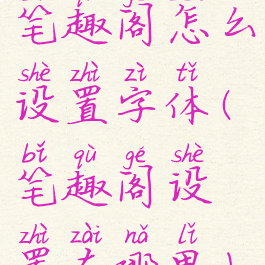 笔趣阁怎么
shè zhì zì tǐ
设置字体(
bǐ qù gé shè
笔趣阁设
zhì zài nǎ lǐ
置在哪里)